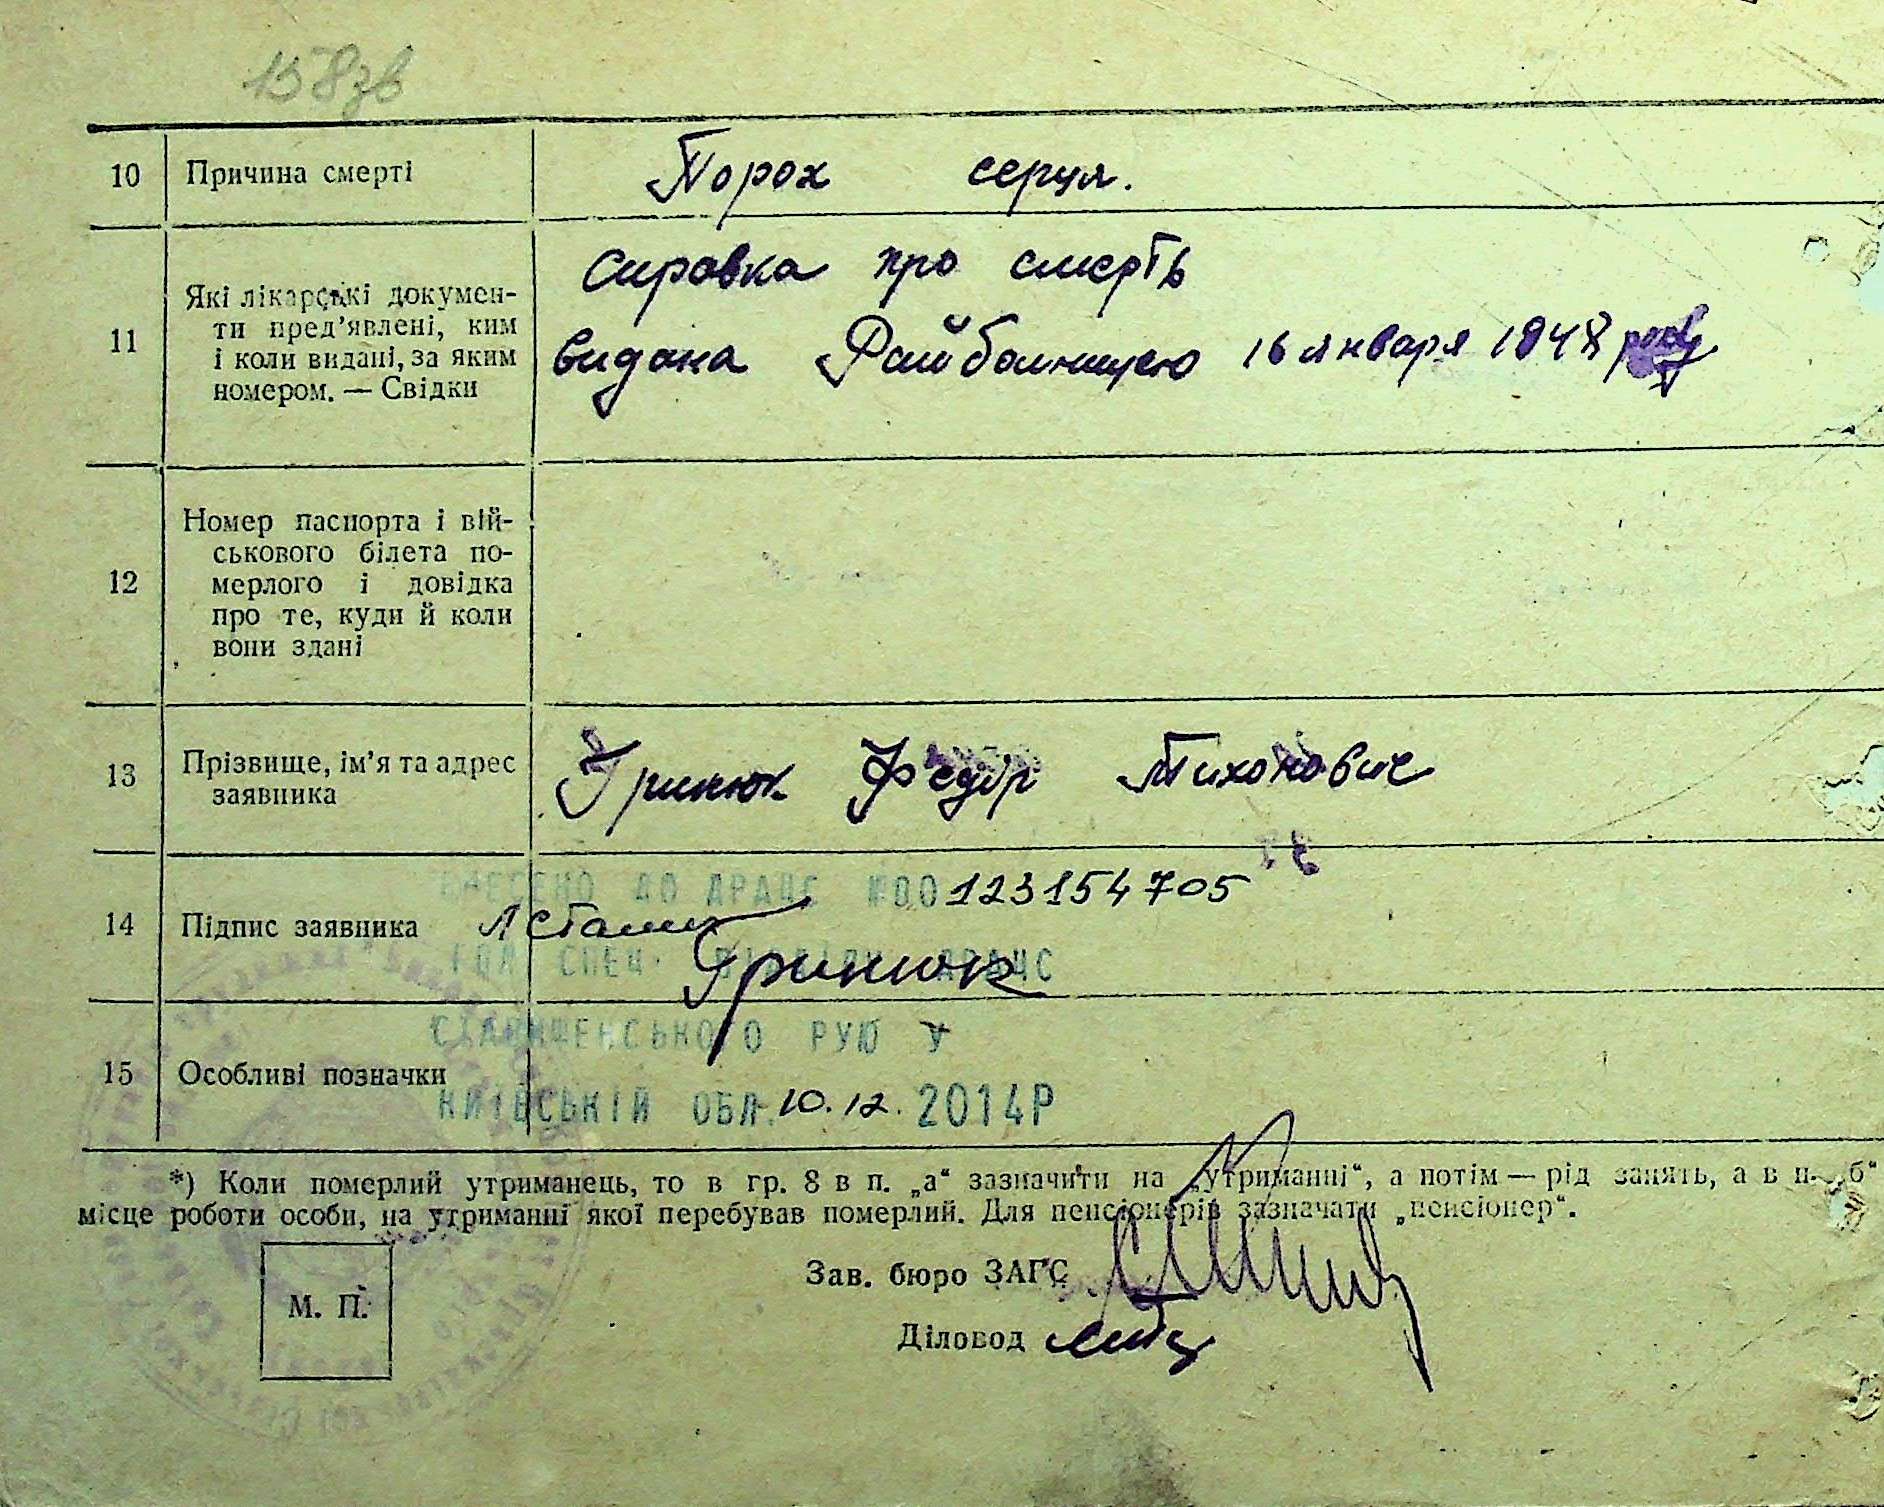 158зв
10 Причина смерті Порох серця.
11 Які лікарські докумен-
ти пред'явлені, ким
і коли видані, за яким
номером. — Свідки
Справка про смерть
видана Райбольницею 16 января 1948 року
12 Номер паспорта і вій-
ськового білета по-
мерлого і довідка
про те, куди й коли
вони здані
13 Прізвище, ім'я та адрес
заявника
Гринюк Федір Тихонович
ВНЕСЕНО ДО ДРАЦС №00123154705
14 Підпис заявника
Гринюк
СПЕЦ. ДРАЦС
СТАВИЩЕНСЬКОГО РУЮ У
15 Особливі позначки
КИЇВСЬКІЙ ОБЛ. 10.12.2014Р
*) Коли померлий утриманець, то в гр. 8 в п. „а“ зазначити на „утриманні“, а потім — рід занять, а в п. „б“
місце роботи особи, на утриманні якої перебував померлий. Для пенсіонерів зазначати „пенсіонер“.
Зав. бюро ЗАГС
М. П.
Діловод